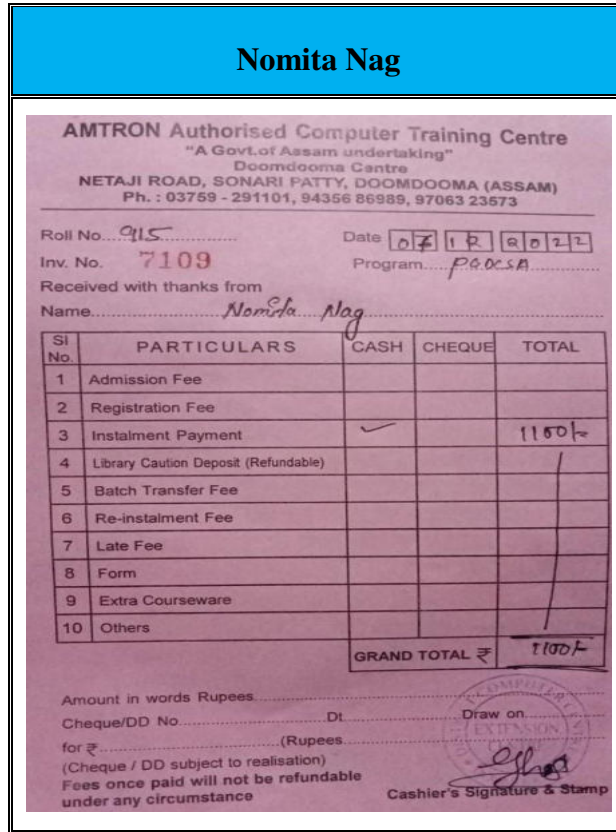 Nomita Nag
AMTRON Authorised Computer Training Centre
"A Govt.of Assam undertaking"
Doomdooma Centre
NETAJI ROAD, SONARI PATTY, DOOMDOOMA (ASSAM)
Ph. : 03759 - 291101, 94356 86989, 97063 23573
Roll No. 915 Date 07 12 2022
Inv. No. 7109 Program PGDCSA
Received with thanks from
Name Nomita Nag
Sl No. PARTICULARS CASH CHEQUE TOTAL
1 Admission Fee
2 Registration Fee
3 Instalment Payment ✓ 1100/-
4 Library Caution Deposit (Refundable)
5 Batch Transfer Fee
6 Re-instalment Fee
7 Late Fee
8 Form
9 Extra Courseware
10 Others
GRAND TOTAL ₹ 1100/-
Amount in words Rupees
Cheque/DD No. Dt. Draw on
for ₹ (Rupees
(Cheque / DD subject to realisation)
Fees once paid will not be refundable
under any circumstance Cashier's Signature & Stamp